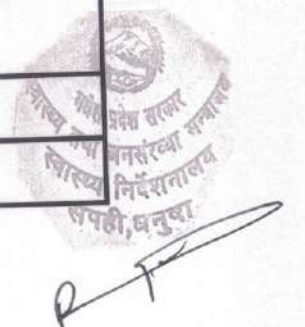 मधेश प्रदेश सरकार
स्वास्थ्य तथा जनसंख्या मन्त्रालय
स्वास्थ्य निर्देशनालय
सपही,धनुषा